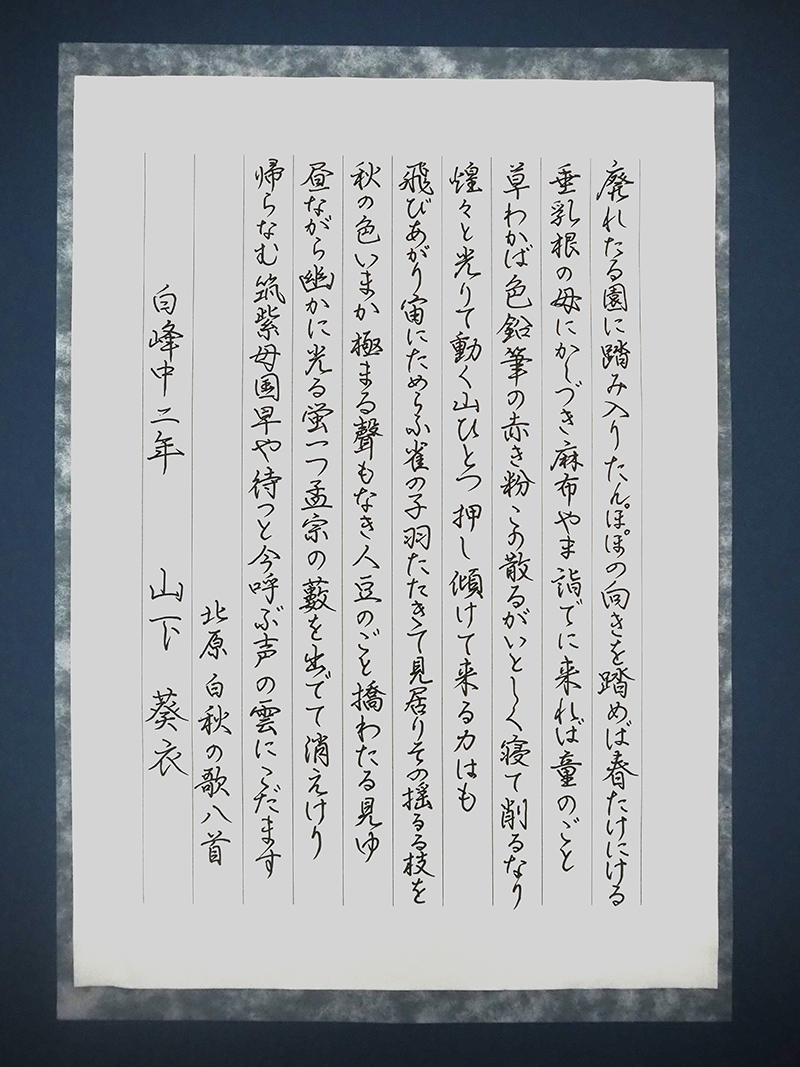 廃れたる園に踏み入りたんぽぽの向きを踏めば春たけにける
垂乳根の母にかしづき麻布やま詣でに来れば童のごと
草わかば色鉛筆の赤き粉この散るがいとしく寝て削るなり
煌々と光りて動く山ひとつ押し傾けて来る力はも
飛びあがり宙にためらふ雀の子羽たたきて見居りその揺るる枝を
秋の色いまか極まる聲もなき人豆のごと橋わたる見ゆ
昼ながら幽かに光る蛍一つ孟宗の藪を出でて消えけり
帰らなむ筑紫母国早や待つと今呼ぶ声の雲にこだます
北原白秋の歌八首
白峰中二年 山下葵衣